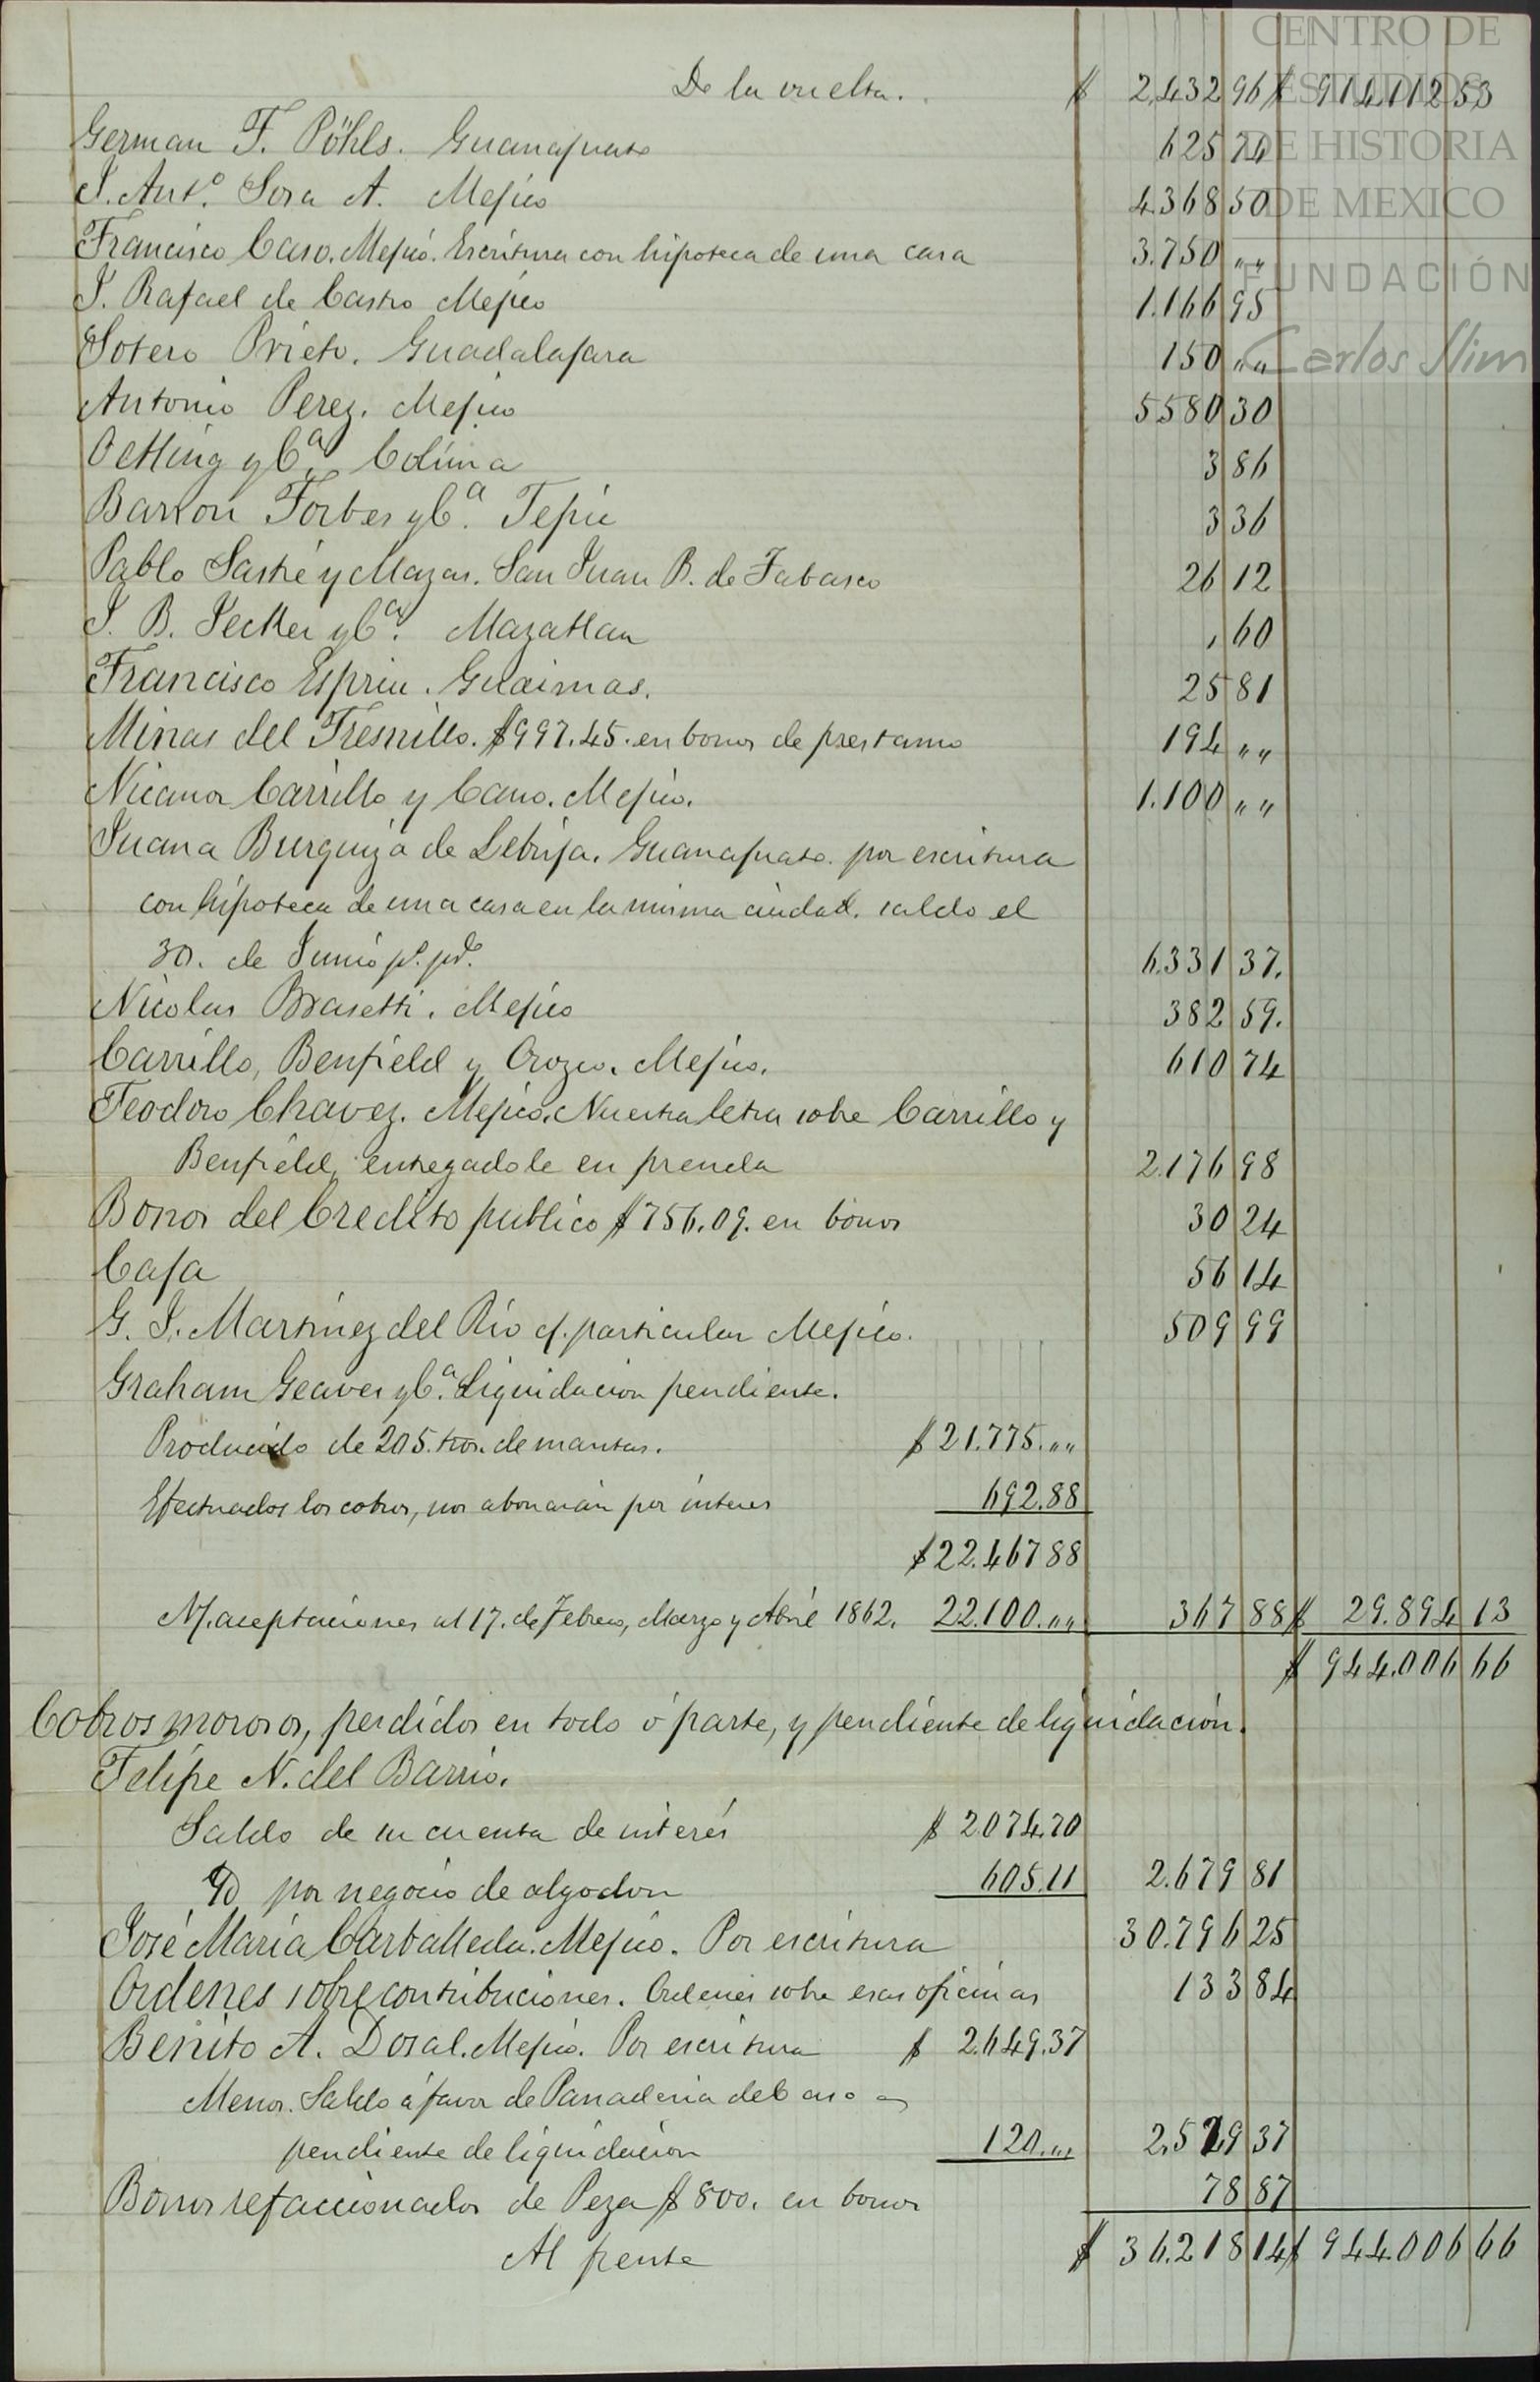 CENTRO DE
ESTUDIOS
DE HISTORIA
DE MEXICO
FUNDACIÓN
Carlos Slim
De la vuelta. $ 2,432 96 $ 914.112 53
German F. Pöhls. Guanajuato 625 74
J. Antº. Sora A. Mejico 4.368 50
Francisco Caso. Mejico. Escritura con hipoteca de una casa 3.750 ""
J. Rafael de Castro Mejico 1.166 95
Sotero Prieto. Guadalajara 150 ""
Antonio Perez. Mejico 5580 30
Oetling y Cª. Colima 3 86
Barron Forbes y Cª. Tepic 3 36
Pablo Sastré y Mazas. San Juan B. de Tabasco 26 12
J. B. Jecker y Cª. Mazatlan , 60
Francisco Espriu. Guaimas. 25 81
Minas del Fresnillo. $997.45. en bonos de prestamo 194 ""
Nicanor Carrillo y Cano. Mejico. 1.100 ""
Juana Burguiza de Lebrija. Guanajuato. por escritura
con hipoteca de una casa en la misma ciudad. saldo el
30. de Junio pº. pdº. 6.331 37.
Nicolas Brasetti. Mejico 382 59.
Carrillo, Benfield y Orozco. Mejico. 610 74
Teodoro Chavez. Mejico. Nuestra letra sobre Carrillo y
Benfield, entregadole en prenda 2.176 98
Bonos del Credito publico $756.09. en bonos 30 24
Caja 56 14
G. J. Martinez del Rio c/. particular Mejico. 509 99
Graham Geaves y Cª. Liquidacion pendiente.
Producido de 205. tros. de mantas. $ 21.775. ""
Efectuados los cobros, nos abonarán por interes 692.88
$ 22.467 88
N/. aceptaciones al 17. de Febrero, Marzo y Abril 1862. 22.100. "" 367 88 $ 29.894 13
$ 944.006 66
Cobros morosos, perdidos en todo ó parte, y pendiente de liquidación.
Felipe N. del Barrio.
Saldo de su cuenta de interés $ 2.074.70
Id por negocio de algodon 605.11 2.679 81
José María Carballeda. Mejico. Por escritura 30.796 25
Ordenes sobre contribuciones. Ordenes sobre esas oficinas 133 84
Benito A. Dosal. Mejico. Por escritura $ 2.649.37
Menos. Saldo á favor de Panaderia del
pendiente de liquidacion 120. "" 2,529 37
Bonos refaccionados de Peza $800. en bonos 78 87
Al frente $ 36.218 14 $ 944.006 66